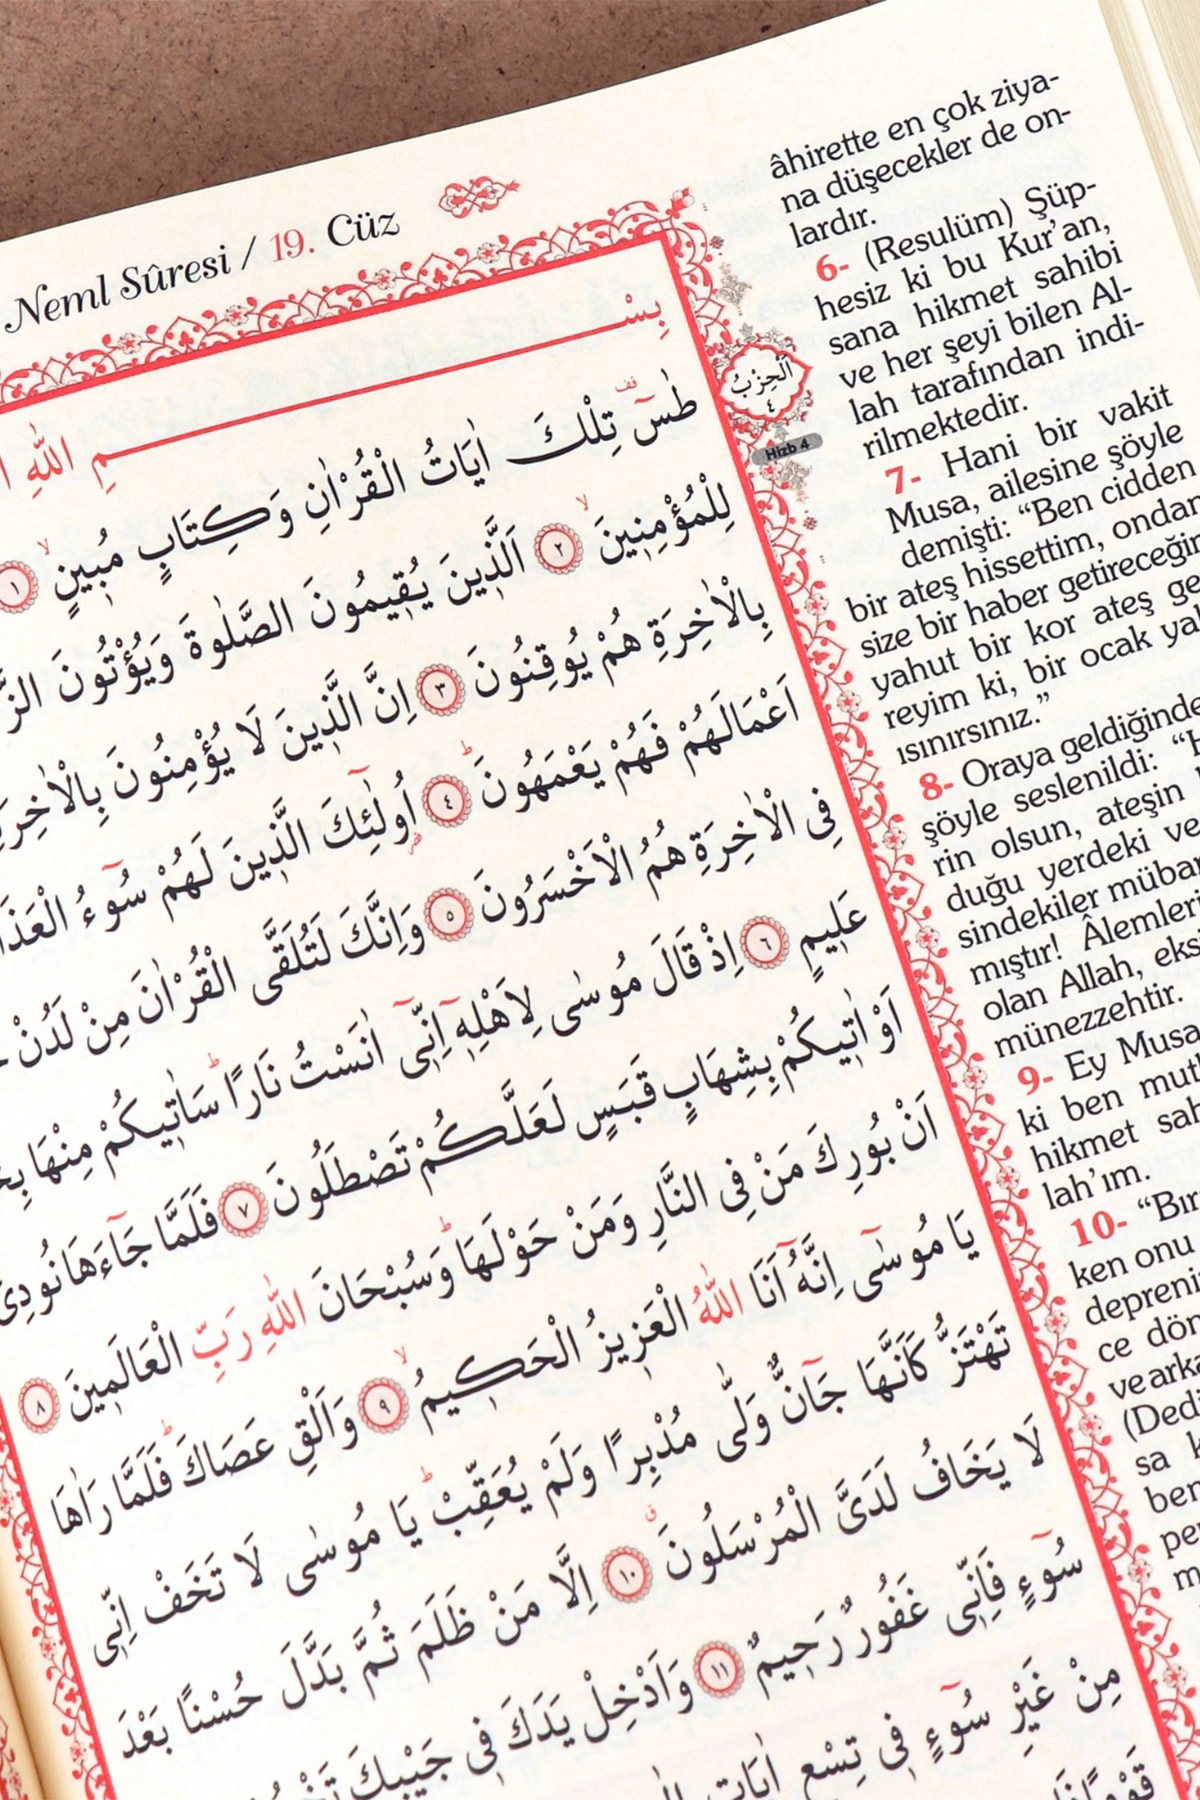 Neml Sûresi / 19. Cüz
بِسْمِ اللّٰهِ
طٰسٓ تِلْكَ اٰيَاتُ الْقُرْاٰنِ وَكِتَابٍ مُبٖينٍۙ ﴿١﴾
لِلْمُؤْمِنٖينَۙ ﴿٢﴾ اَلَّذٖينَ يُقٖيمُونَ الصَّلٰوةَ وَيُؤْتُونَ
بِالْاٰخِرَةِ هُمْ يُوقِنُونَ ﴿٣﴾ اِنَّ الَّذٖينَ لَا يُؤْمِنُونَ بِالْاٰخِرَةِ
اَعْمَالَهُمْ فَهُمْ يَعْمَهُونَؕ ﴿٤﴾ اُو۬لٰٓئِكَ الَّذٖينَ لَهُمْ سُٓوءُ
فِي الْاٰخِرَةِ هُمُ الْاَخْسَرُونَ ﴿٥﴾ وَاِنَّكَ لَتُلَقَّى الْقُرْاٰنَ مِنْ لَدُنْ
عَلٖيمٍ ﴿٦﴾ اِذْ قَالَ مُوسٰى لِاَهْلِهٖٓ اِنّٖٓي اٰنَسْتُ نَارًاؕ سَاٰتٖيكُمْ مِنْهَا
اَوْ اٰتٖيكُمْ بِشِهَابٍ قَبَسٍ لَعَلَّكُمْ تَصْطَلُونَ ﴿٧﴾ فَلَمَّا جَٓاءَهَا نُودِيَ
اَنْ بُورِكَ مَنْ فِي النَّارِ وَمَنْ حَوْلَهَاؕ وَسُبْحَانَ اللّٰهِ رَبِّ الْعَالَمٖينَ ﴿٨﴾
يَا مُوسٰٓى اِنَّهُٓ اَنَا اللّٰهُ الْعَزٖيزُ الْحَكٖيمُۙ ﴿٩﴾ وَاَلْقِ عَصَاكَؕ فَلَمَّا رَاٰهَا
تَهْتَزُّ كَاَنَّهَا جَٓانٌّ وَلّٰى مُدْبِرًا وَلَمْ يُعَقِّبْؕ يَا مُوسٰى لَا تَخَفْ اِنّٖي
لَا يَخَافُ لَدَيَّ الْمُرْسَلُونَࣗ ﴿١٠﴾ اِلَّا مَنْ ظَلَمَ ثُمَّ بَدَّلَ حُسْنًا بَعْدَ
سُٓوءٍ فَاِنّٖي غَفُورٌ رَحٖيمٌ ﴿١١﴾ وَاَدْخِلْ يَدَكَ فٖي جَيْبِكَ
مِنْ غَيْرِ سُٓوءٍ فٖي تِسْعِ اٰيَاتٍ
اَلْحِزْبُ
٤
Hizb 4
âhirette en çok ziya-
na düşecekler de on-
lardır.
6- (Resulüm) Şüp-
hesiz ki bu Kur'an,
sana hikmet sahibi
ve her şeyi bilen Al-
lah tarafından indi-
rilmektedir.
7- Hani bir vakit
Musa, ailesine şöyle
demişti: “Ben cidden
bir ateş hissettim, ondan
size bir haber getireceğim
yahut bir kor ateş ge
reyim ki, bir ocak
ısınırsınız.”
8- Oraya geldiğinde
şöyle seslenildi:
rin olsun, ateşin
duğu yerdeki ve
sindekiler mübar
mıştır! Âlemleri
olan Allah, eksi
münezzehtir.
9- Ey Musa
ki ben mutl
hikmet sah
lah'ım.
10- “Bır
ken onu
depreni
ce dön
ve arka
(Dedi
sa k
ben
pe
m